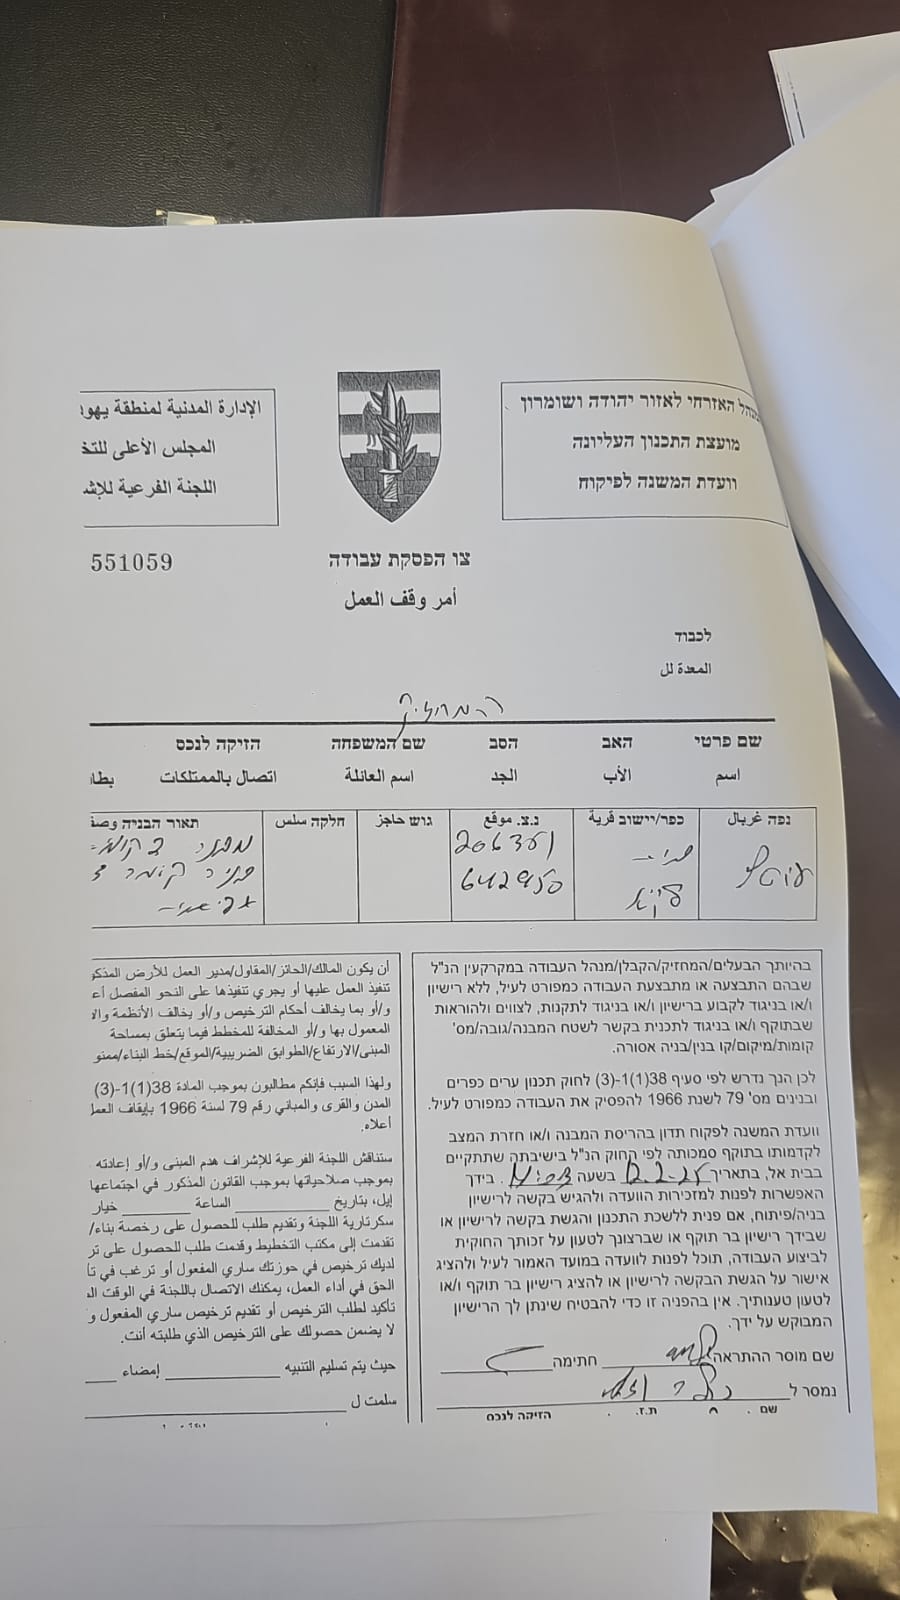 מנהל האזרחי לאזור יהודה ושומרון
מועצת התכנון העליונה
וועדת המשנה לפיקוח
الإدارة المدنية لمنطقة يهو
المجلس الأعلى للتخ
اللجنة الفرعية للإش
551059
צו הפסקת עבודה
أمر وقف العمل
לכבוד
المعدة لل
המחזיק
שם פרטי האב הסב שם המשפחה הזיקה לנכס
اسم الأب الجد اسم العائلة اتصال بالممتلكات بطا
נפה غربال
כפר/יישוב قرية
נ.צ. موقع
גוש حاجز
חלקה سلس
תאור הבניה وصف
206351
642950
בהיותך הבעלים/המחזיק/הקבלן/מנהל העבודה במקרקעין הנ"ל
שבהם התבצעה או מתבצעת העבודה כמפורט לעיל, ללא רישיון
ו/או בניגוד לקבוע ברישיון ו/או בניגוד לתקנות, לצווים ולהוראות
שבתוקף ו/או בניגוד לתכנית בקשר לשטח המבנה/גובה/מס'
קומות/מיקום/קו בנין/בניה אסורה.
לכן הנך נדרש לפי סעיף 38(1)-1(3) לחוק תכנון ערים כפרים
ובנינים מס' 79 לשנת 1966 להפסיק את העבודה כמפורט לעיל.
וועדת המשנה לפקוח תדון בהריסת המבנה ו/או חזרת המצב
לקדמותו בתוקף סמכותה לפי החוק הנ"ל בישיבתה שתתקיים
בבית אל, בתאריך בשעה . בידך
האפשרות לפנות למזכירות הוועדה ולהגיש בקשה לרישיון
בניה/פיתוח, אם פנית ללשכת התכנון והגשת בקשה לרישיון או
שבידך רישיון בר תוקף או שברצונך לטעון על זכותך החוקית
לביצוע העבודה, תוכל לפנות לוועדה במועד האמור לעיל ולהציג
אישור על הגשת הבקשה לרישיון או להציג רישיון בר תוקף ו/או
לטעון טענותיך. אין בהפניה זו כדי להבטיח שינתן לך הרישיון
המבוקש על ידך.
שם מוסר ההתראה חתימה
נמסר ל
שם ת.ז. הזיקה לנכס
أن يكون المالك/الحائز/المقاول/مدير العمل للأرض المذكو
تنفيذ العمل عليها أو يجري تنفيذها على النحو المفصل أع
و/أو بما يخالف أحكام الترخيص و/أو يخالف الأنظمة والا
المعمول بها و/أو المخالفة للمخطط فيما يتعلق بمساحة
المبنى/الارتفاع/الطوابق الضريبية/الموقع/خط البناء/ممنو
ولهذا السبب فإنكم مطالبون بموجب المادة 38(1)-1(3)
المدن والقرى والمباني رقم 79 لسنة 1966 بإيقاف العمل
أعلاه.
ستناقش اللجنة الفرعية للإشراف هدم المبنى و/أو إعادته
بموجب صلاحياتها بموجب القانون المذكور في اجتماعها
إيل، بتاريخ الساعة خيار
سكرتارية اللجنة وتقديم طلب للحصول على رخصة بناء/
تقدمت إلى مكتب التخطيط وقدمت طلب للحصول على تر
لديك ترخيص في حوزتك ساري المفعول أو ترغب في تأ
الحق في أداء العمل، يمكنك الاتصال باللجنة في الوقت الم
تأكيد لطلب الترخيص أو تقديم ترخيص ساري المفعول و
لا يضمن حصولك على الترخيص الذي طلبته أنت.
حيث يتم تسليم التنبيه إمضاء
سلمت ل